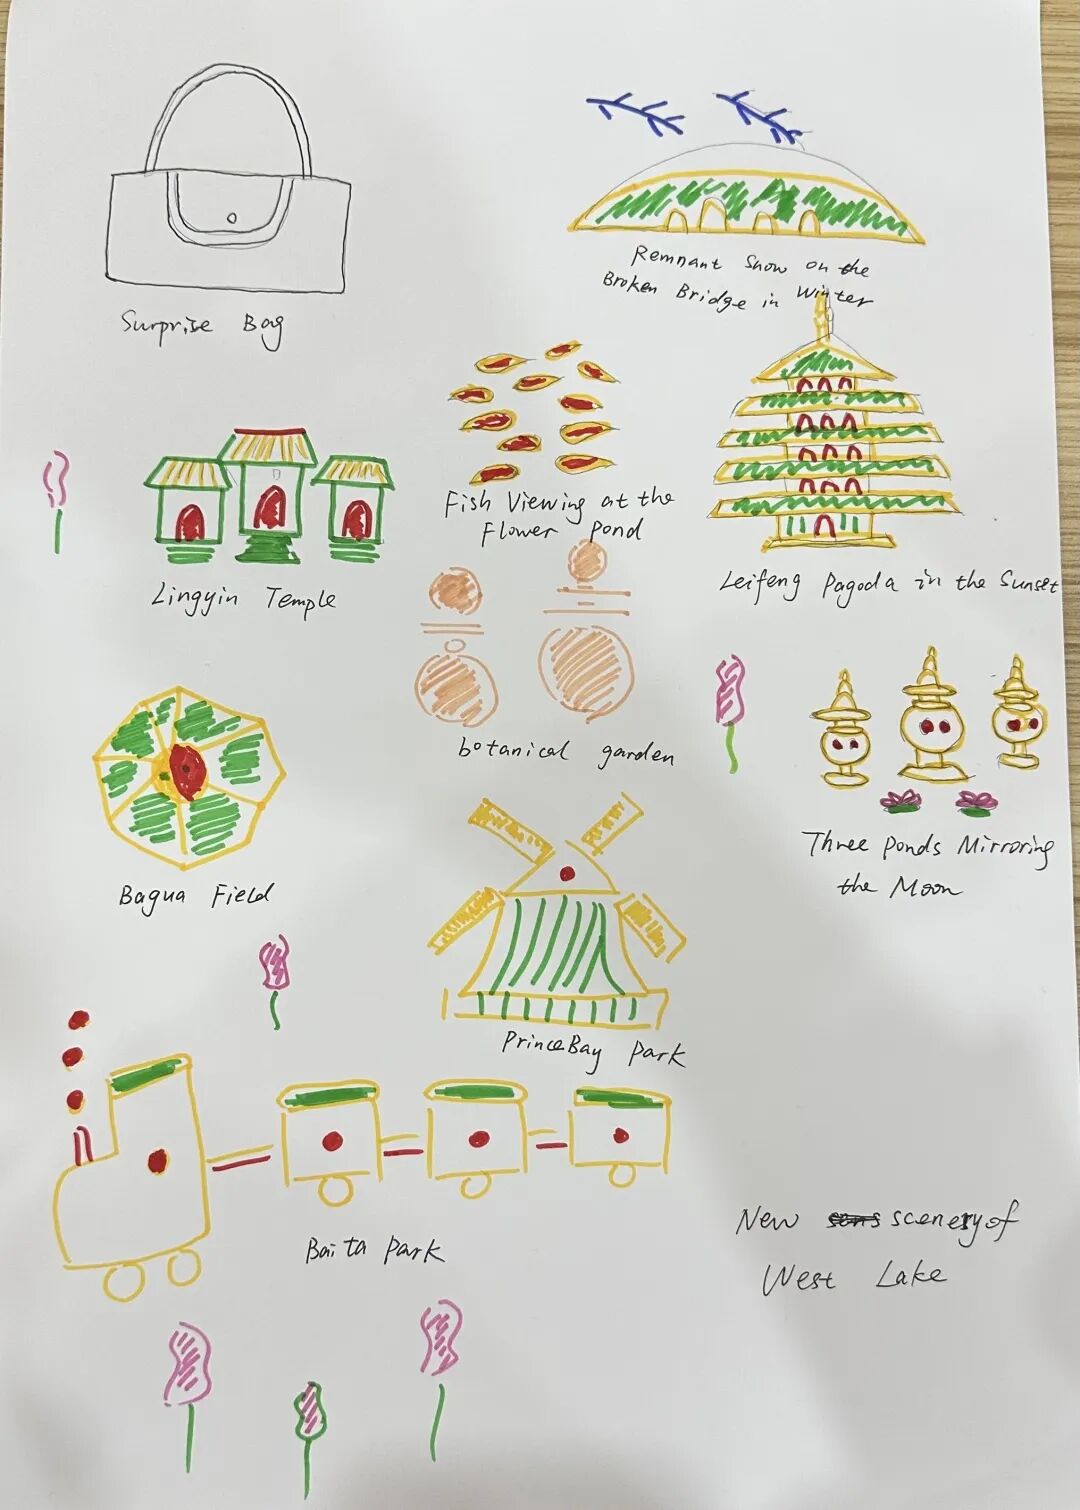 Surprise Bag
Remnant Snow on the
Broken Bridge in Winter
Fish Viewing at the
Flower Pond
Lingyin Temple
Leifeng Pagoda in the Sunset
botanical garden
Three Ponds Mirroring
the Moon
Bagua Field
PrinceBay Park
Baita Park
New scenery of
West Lake